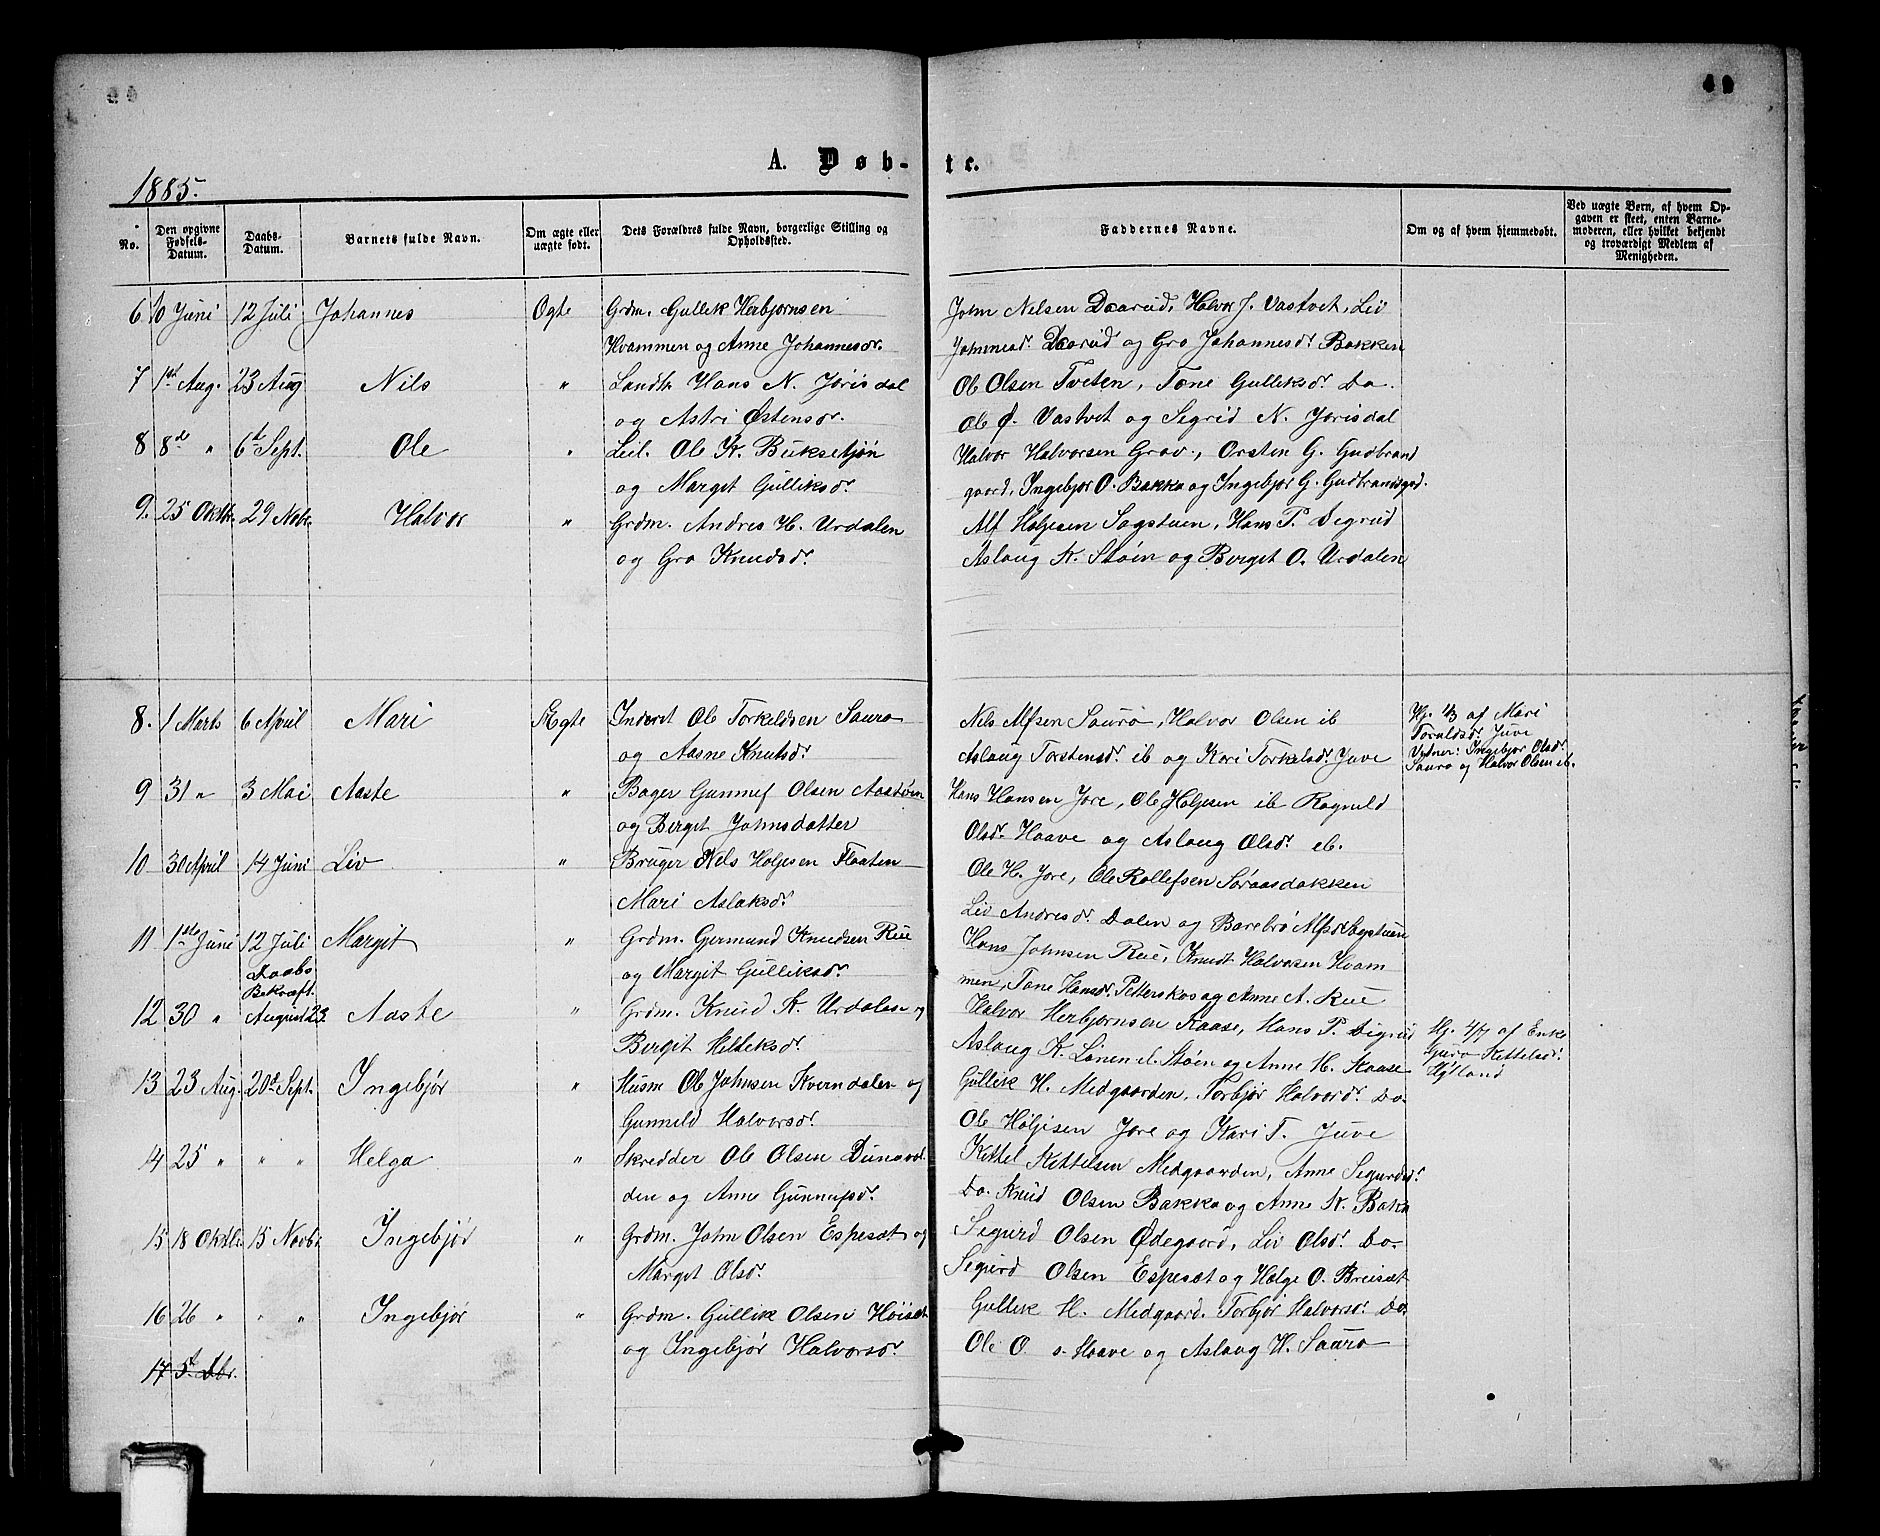 49
A. Døb-
te.
1885.
No.
Den opgivne Fødsels-Datum.
Daabs-Datum.
Barnets fulde Navn.
Om ægte eller uægte født.
Dets Forældres fulde Navn, borgerlige Stilling og Opholdssted.
Faddernes Navne.
Om og af hvem hjemmedøbt.
Ved uægte Børn, af hvem Opgaven er skeet, enten Barnemoderen, eller hvilket bekjendt og troværdigt Medlem af Menigheden.
6 10 Juni 12 Juli Johannes Ogte Grdm. Gullik Herbjørnsen
Hvammen og Anne Johannesdr.
John Nilsen Daarud, Halvor J. Vastvet, Liv
Daarud og Gro Johannesdr. Bakken
7 1st Aug. 23 Aug Nils " Landh. Hans N. Jorisdal
og Astri Østensdr.
Ole Olsen Tveten, Tone Gulliksdr. Do.
Ole Ø. Vastvet og Segrid N. Jorisdal
8 8de " 6t Sept. Ole " Leil. Ole K. Buksetjøn
og Marget Gulliksdr.
Halvor Halvorsen Grav, Orsten G. Gudbrand
gaard, Ingebjør O. Bakka og Ingebjør G. Gudbrandsgrd.
9. 25 Oktbr. 29 Novbr. Halvor " Grdm. Andres H. Urdalen
og Gro Knudsdr.
Alf Holjesen Sagstuen, Hans P. Digrud
Aslaug K. Støen og Berget O. Urdalen
8. 1 Marts 6 April Mari Ægte Inderst Ole Torkeldsen Sauro
og Aasne Knutsdr.
Nels Alfsen Sauro, Halvor Olsen ib
Aslaug Torstensdr. ib og Kari Torkelsdr. Juve
Hj. 1/3 af Mari
Juve
Vitner: Ingebjør Olsdr.
Sauro og Halvor Olsen ib.
9 31 " 3 Mai Aaste " Bager Gunnef Olsen
og Berget Johnsdatter
Hans Hansen Jore, Ole Holjesen ib Ragnild
Olsdr. Haave og Aslaug Olsdr. ib.
10 30 April 14 Juni Liv " Bruger Nels Holjesen Flaaten
Mari Aslaksdr.
Ole H. Jore, Ole Rollefsen Søraasdakken
Liv Andresdr. Dalen og Barebro
11 1ste Juni 12 Juli Margit " Grdm. Germund Knudsen Rue
og Margit Gulliksdr.
Hans Johnsen Rue, Knudt Halvorsen Hvam
men, Tone Hansdr. Petterskos og Anne A. Rue
Daabs
Bekræft.
12 30 " August 23. Aaste " Grdm. Knud K. Urdalen og
Bergit Helleksdr.
Halvor Herbjørnsen Kaase, Hans P. Digrud
Aslaug K. Støen og Anne H. Kaase
Hj. 4/7 af Enke
Guro Kittelsdr.
Hytland
13 23 Aug. 20d Sept. Ingebjør " Husm Ole Johnsen Kverndalen og
Gunnild Halvorsdr.
Gullik H. Medgaarden, Torbjør Halvorsdr. Do.
Ole Holjesen Jore og Kari T. Juve
14 25 " " " Helga " Skredder Ole Olsen Dunserud
den og Anne Gunnufsdr.
Kittel Kittelsen Medgaarden, Anne Segurdsdr.
Do. Knud Olsen Bakka og Anne K. Baka
15 18 Oktbr. 15 Novbr Ingebjør " Grdm. John Olsen Espeset og
Marget Olsdr.
Segurd Olsen Ødegaard, Liv Olsdr. Do.
Segurd Olsen Espeset og Helge O. Breiset
16 26 " " " Ingebjør " Grdm. Gullik Olsen Høiset
og Ingebjør Halvorsdr.
Gullik H. Medgaard. Torbjør Halvorsdr. Do.
Ole O. Haave og Aslaug H. Sauro
17 5t Dbr.